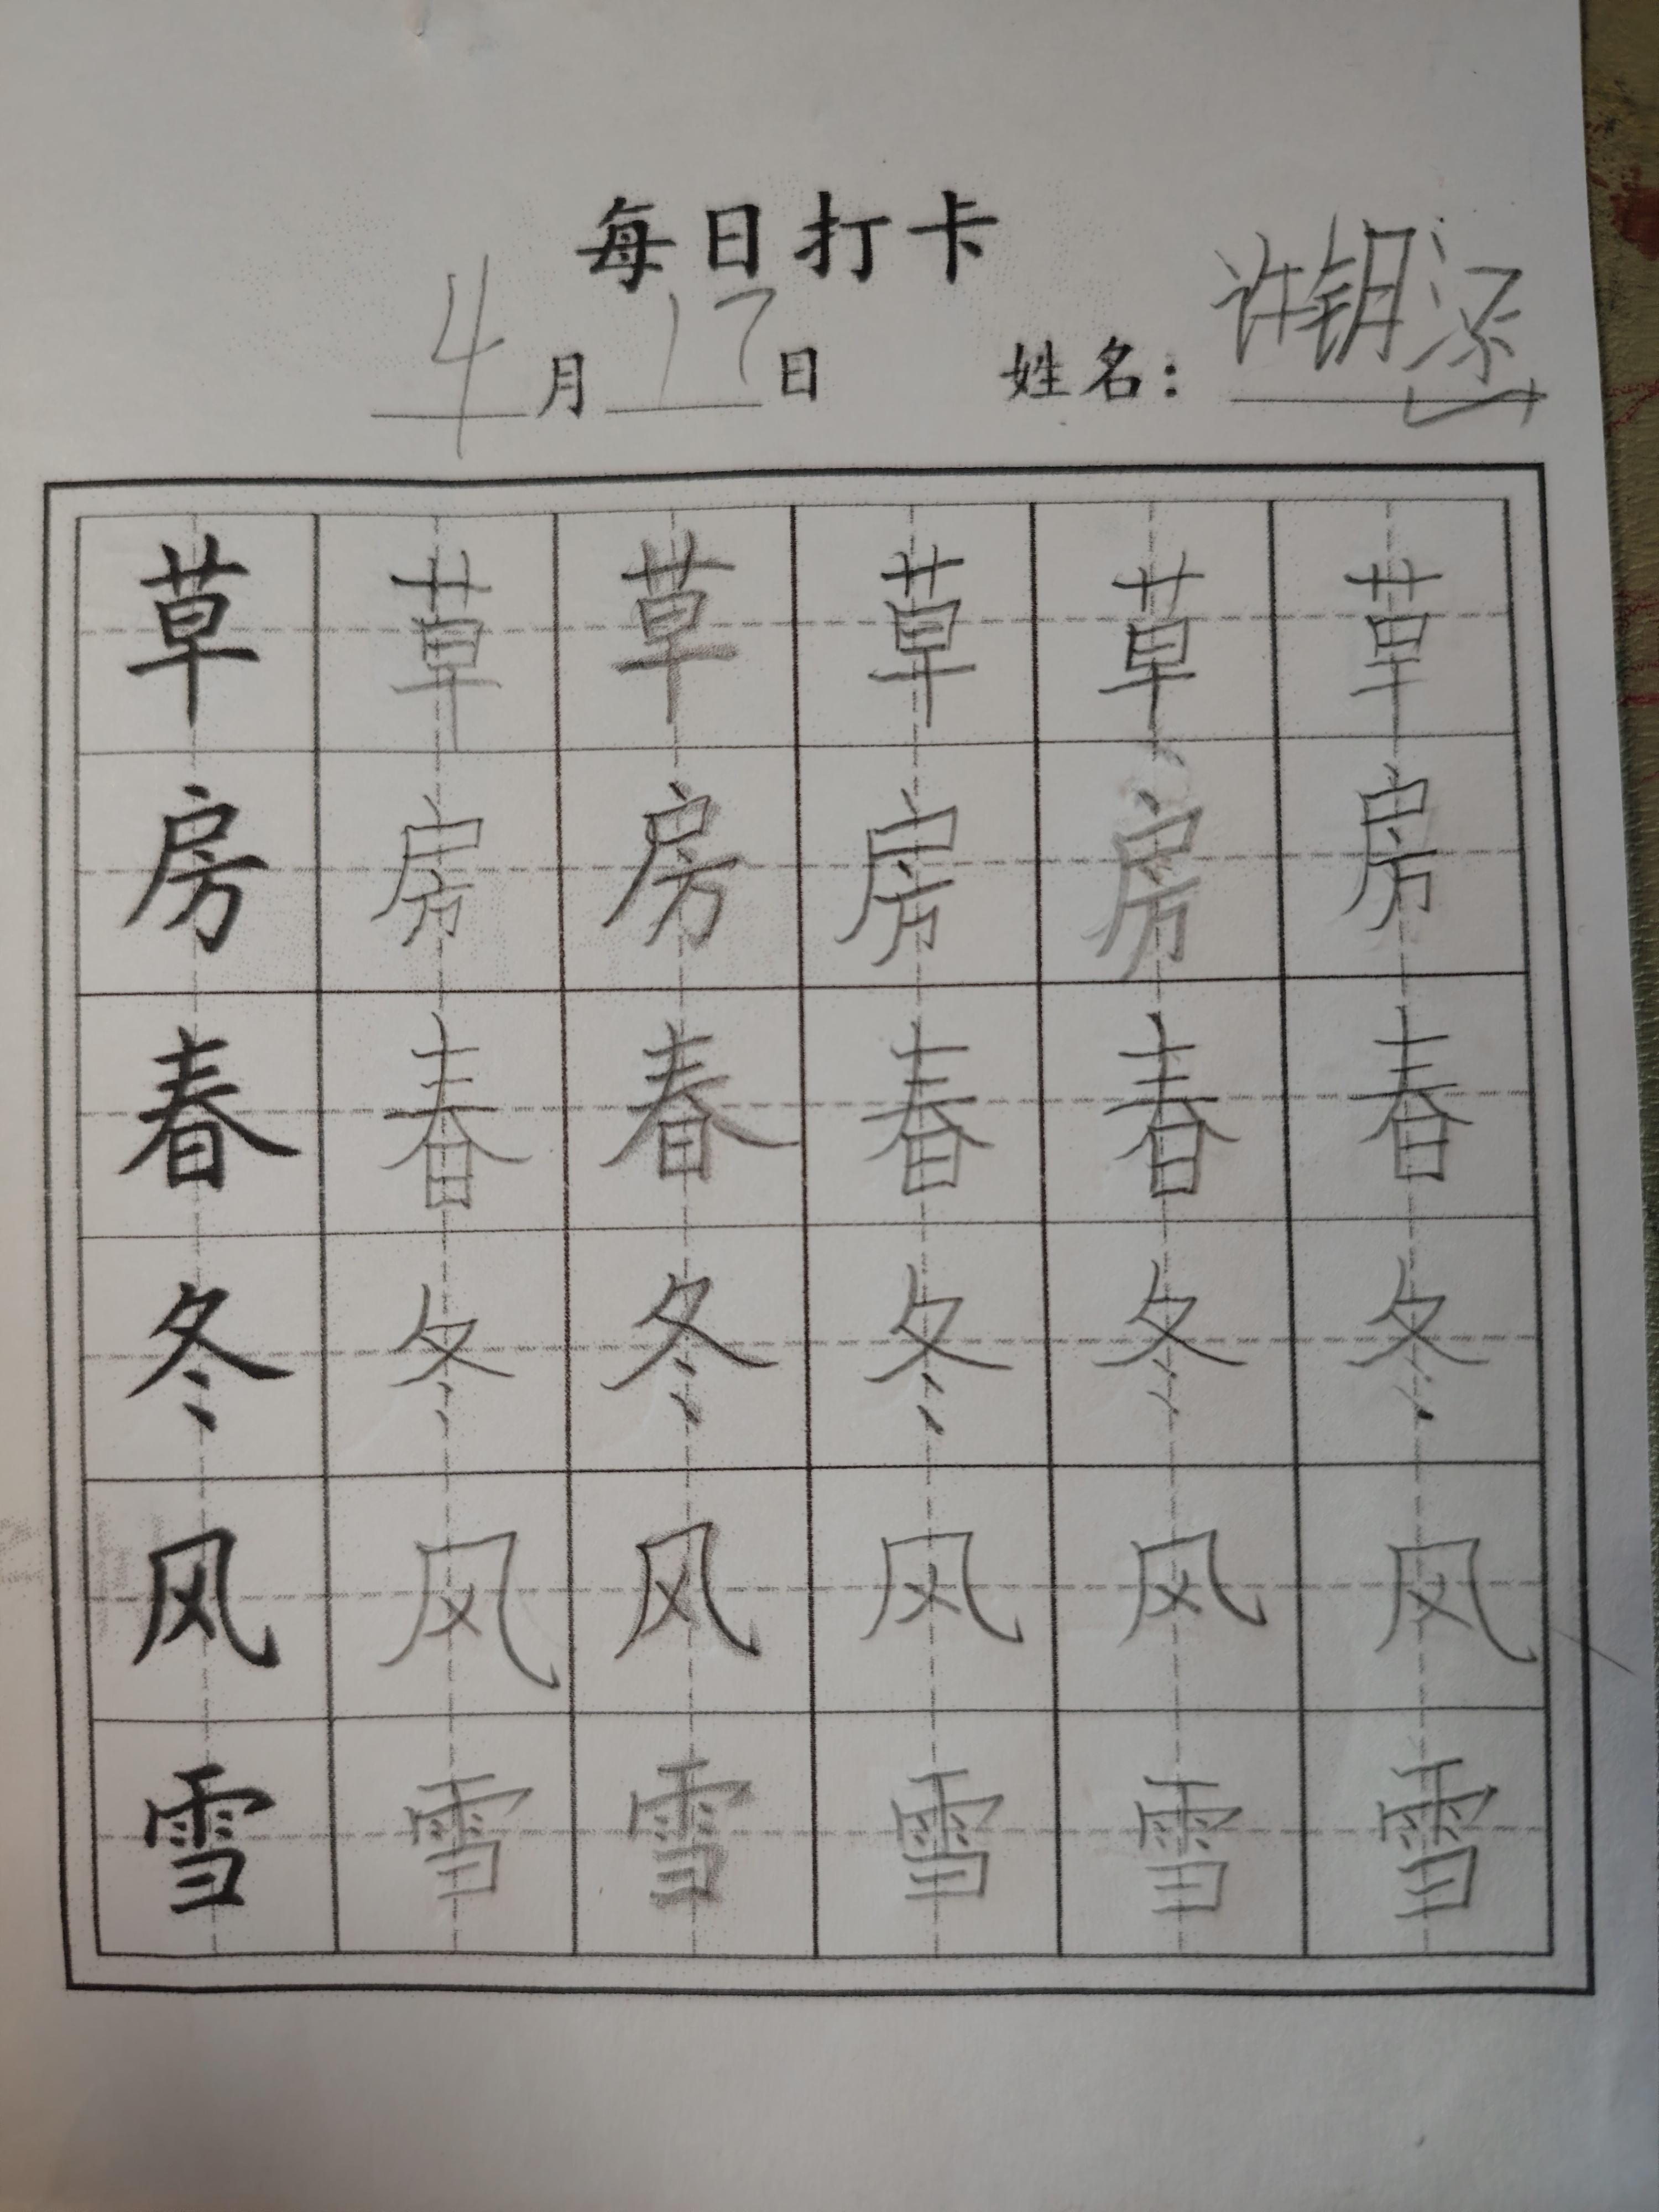 每日打卡
4月17日 姓名：许钥
草草草草草草
房房房房房房
春春春春春春
冬冬冬冬冬冬
风风风风风风
雪雪雪雪雪雪